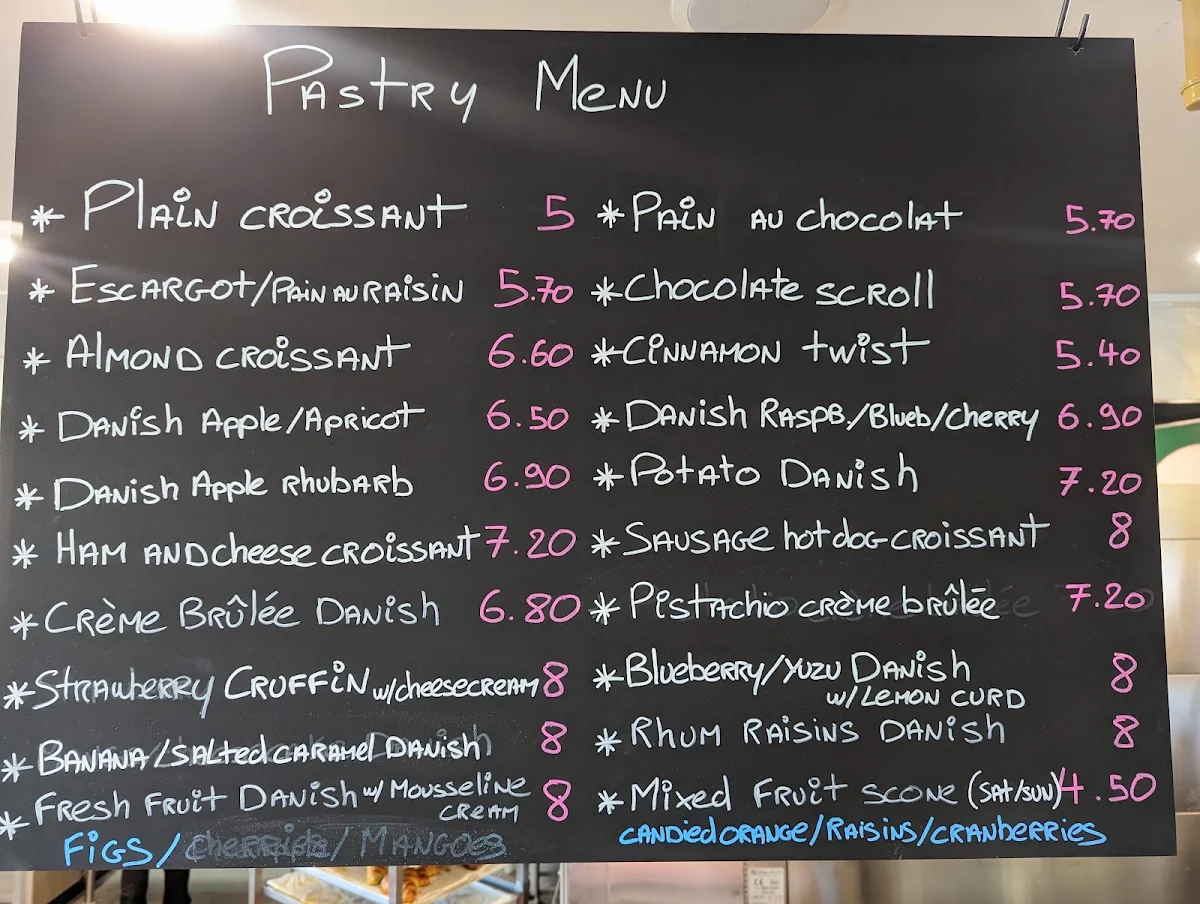 Pastry Menu
* Plain croissant 5
* Escargot/Pain au raisin 5.70
* Almond croissant 6.60
* Danish Apple/Apricot 6.50
* Danish Apple rhubarb 6.90
* Ham and cheese croissant 7.20
* Crème Brûlée Danish 6.80
* Strawberry Cruffin w/cheesecream 8
* Banana/salted caramel Danish 8
* Fresh Fruit Danish w/ Mousseline
cream 8
Figs/Cherries/Mangoes
* Pain au chocolat 5.70
* Chocolate scroll 5.70
* Cinnamon twist 5.40
* Danish Raspb./Blueb/Cherry 6.90
* Potato Danish 7.20
* Sausage hot dog croissant 8
* Pistachio crème brûlée 7.20
* Blueberry/yuzu Danish 8
w/Lemon curd
* Rhum Raisins Danish 8
* Mixed Fruit scone (Sat/Sun) 4.50
candied orange/Raisins/cranberries